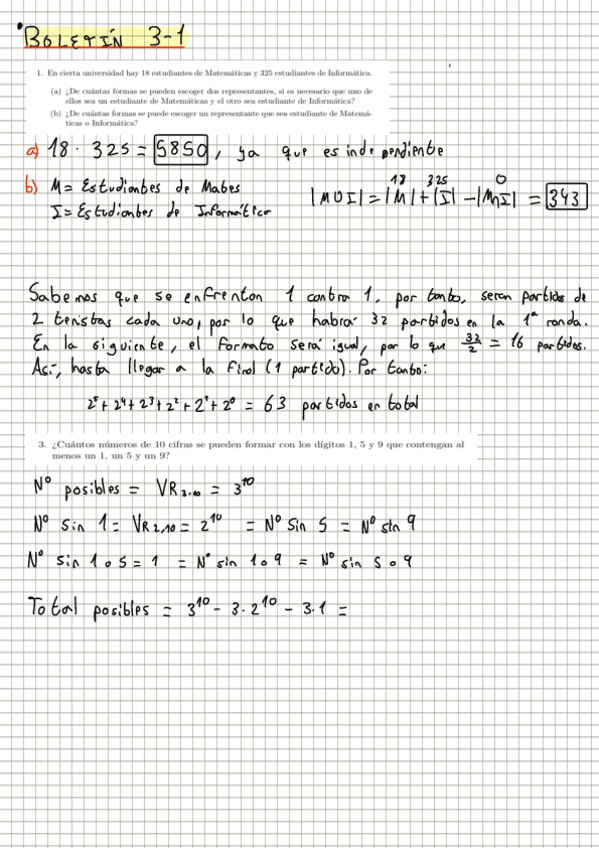 BOLETÍN 3-1
1. En cierta universidad hay 18 estudiantes de Matemáticas y 325 estudiantes de Informática.
(a) ¿De cuántas formas se pueden escoger dos representantes, si es necesario que uno de
ellos sea un estudiante de Matemáticas y el otro sea estudiante de Informática?
(b) ¿De cuántas formas se puede escoger un representante que sea estudiante de Matemá-
ticas o Informática?
a) 18 · 325 = 5850, ya que es independiente
b) M = Estudiantes de Mates
I = Estudiantes de Informática
18 325 0
|M∪I| = |M| + |I| - |M∩I| = 343
Sabemos que se enfrentan 1 contra 1, por tanto, seran partidos de
2 tenistas cada uno, por lo que habrá 32 partidos en la 1ª ronda.
En la siguiente, el formato será igual, por lo que 32/2 = 16 partidos.
Así, hasta llegar a la final (1 partido). Por tanto:
2⁵ + 2⁴ + 2³ + 2² + 2¹ + 2⁰ = 63 partidos en total
3. ¿Cuántos números de 10 cifras se pueden formar con los dígitos 1, 5 y 9 que contengan al
menos un 1, un 5 y un 9?
Nº posibles = VR₃,₁₀ = 3¹⁰
Nº sin 1 = VR₂,₁₀ = 2¹⁰ = Nº sin 5 = Nº sin 9
Nº sin 1 o 5 = 1 = Nº sin 1 o 9 = Nº sin 5 o 9
Total posibles = 3¹⁰ - 3·2¹⁰ - 3·1 =